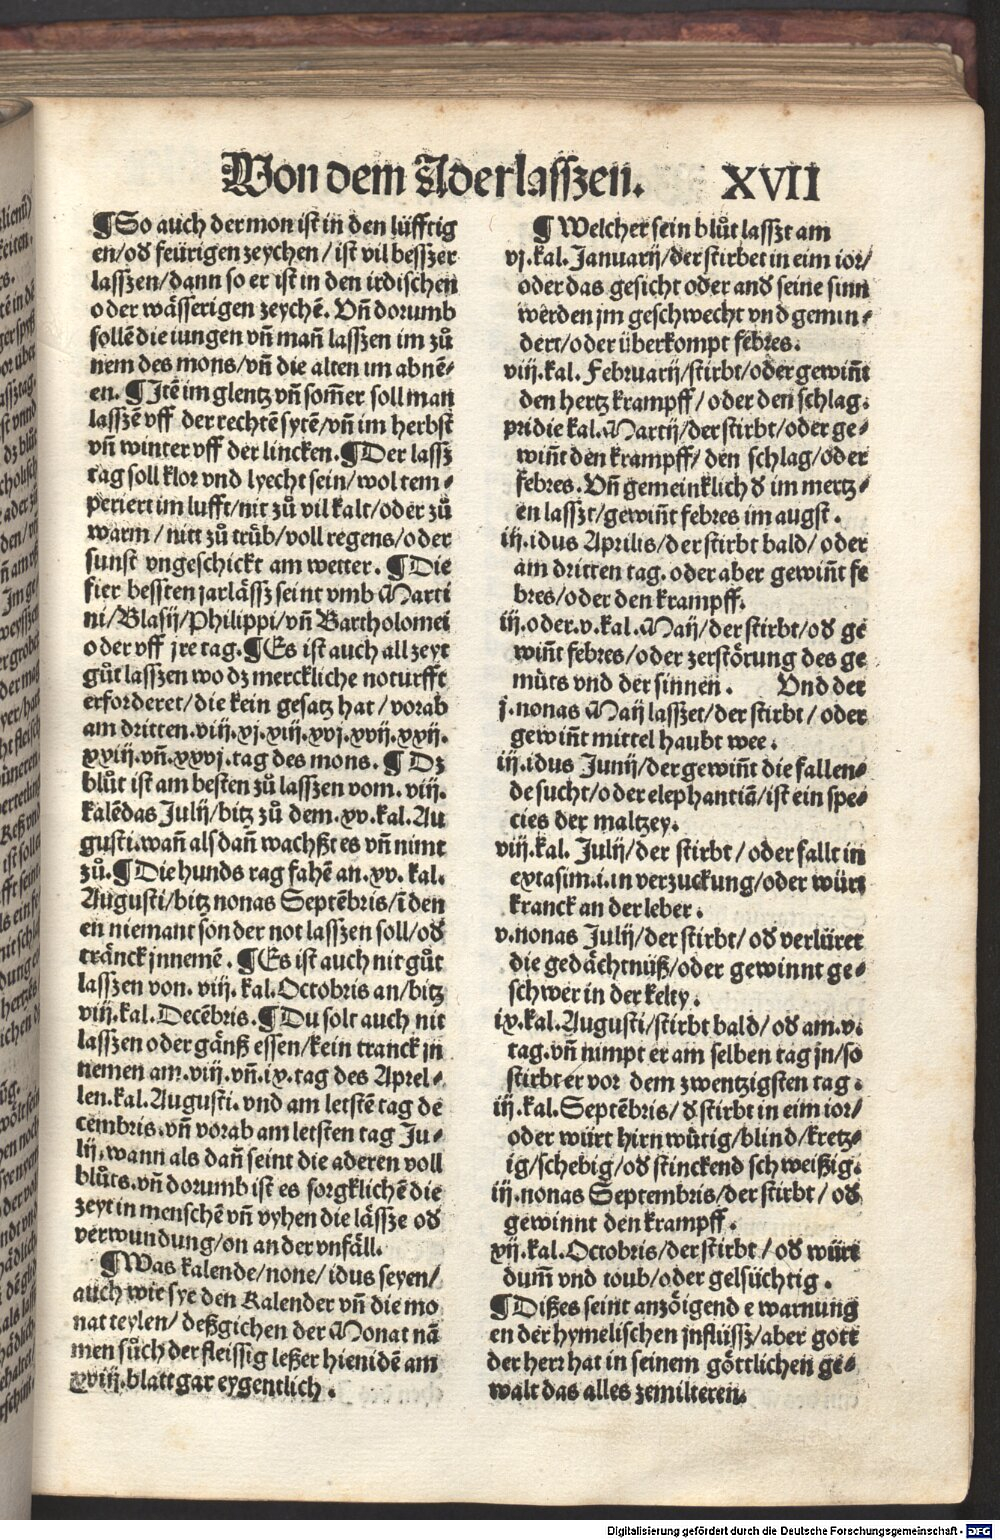 Von dem Aderlasszen. XVII
¶So auch der mon ist in den lüfftig
en/od feürigen zeychen/ ist vil beszer
lasszen/dann so er ist in den irdischen
oder wässerigen zeychē. Vn̄ dorumb
sollē die iungen vn̄ man̄ lasszen im zů
nem des mons/vn̄ die alten im abnē⸗
en. ¶Jtē im glentz vn̄ som̄er soll man
lasszē vff der rechtē sytē/vn̄ im herbst
vn̄ winter vff der lincken. ¶Der lassz
tag soll klor vnd lyecht sein/wol tem⸗
periert im lufft/nit zů vil kalt/oder zů
warm/ nitt zů trüb/voll regens/oder
sunst vngeschickt am wetter. ¶Die
fier bessten jarlässz seint vmb Marti
ni/Blasij/Philippi/vn̄ Bartholomei
oder vff jre tag. ¶Es ist auch all zeyt
gůt lasszen wo dz merckliche noturfft
erforderet/die kein gesatz hat/ vorab
am dritten.viij.xj.xiij.xvj.xvij.xxij.
xxiij.vn̄.xxvj.tag des mons. ¶Dz
blůt ist am besten zů lasszen vom.viij.
kalēdas Julij/bitz zů dem.xv.kal.Au
gusti.wan̄ als dan̄ wachßt es vn̄ nimt
zů.¶Die hunds rag fahē an.xv. kal.
Augusti/bitz nonas Septēbris/ī den
en niemant sonder not lasszen soll/od
tränck jnnemē. ¶Es ist auch nit gůt
lasszen von. viij. kal.Octobris an/bitz
viij.kal.Decēbris.¶Du solt auch nit
lasszen oder gänß essen/kein tranck jn
nemen am.viij.vn̄.ix.tag des Aprel⸗
len.kal.Augusti.vnd am letstē tag de
cembris.vn̄ vorab am letsten tag Ju⸗
lij.wann als dan̄ seint die aderen voll
blůts.vn̄ dorumb ist es sorgklichē die
zeyt in menschē vn̄ vyhen die lässze od
verwundung/on ander vnfäll.
¶Was kalende/none/idus seyen/
auch wie sye den Kalender vn̄ die mo
nat teylen/ deßgichen der Monat nā
men sůch der fleissig leßer hienidē am
xviij.blatt gar eygentlich.
¶Welcher sein blůt lasszt am
vj.kal. Januarij/der stirbet in eim ior/
oder das gesicht oder and seine sinn
werden jm geschwecht vnd gemin⸗
dert/oder überkompt febres.
viij.kal. Februarij/stirbt/oder gewin̄t
den hertz krampff/oder den schlag.
pridie kal.Martij/der stirbt/oder ge⸗
win̄t den krampff/ den schlag/oder
febres. Vn̄ gemeinklich d im mertz⸗
en lasszt/gewin̄t febres im augst.
iij.idus Aprilis/der stirbt bald/ oder
am dritten tag. oder aber gewin̄t fe
bres/oder den krampff.
iij.oder.v.kal.Maij/der stirbt/od ge
win̄t febres/oder zerstörung des ge
můts vnd der sinnen. Vnd der
j.nonas Maij lasszet/der stirbt/ oder
gewin̄t mittel haubt wee.
iij.idus Junij/der gewin̄t die fallen⸗
de sucht/oder elephantiā/ist ein spe⸗
cies der maltzey.
viij.kal. Julij/der stirbt/oder fallt in
extasim.i.in verzuckung/oder würt
kranck an der leber.
v.nonas Julij/der stirbt/ od verlüret
die gedächtnüß/oder gewinnt ge⸗
schwer in der kelty.
ix.kal.Augusti/stirbt bald/ od am.v.
tag.vn̄ nimpt er am selben tag jn/so
stirbt er vor dem zwentzigsten tag.
iij.kal.Septēbris/ d stirbt in eim ior/
oder würt hirn wůtig/blind/kretz⸗
ig/schebig/od stinckend schweißig.
iij.nonas Septembris/der stirbt/ od
gewinnt den krampff.
xij.kal.Octobris/der stirbt/ od würt
dum̄ vnd toub/oder gelsüchtig.
¶Dißes seint anzöigend e warnung
en der hymelischen jnflüssz/aber gott
der herr hat in seinem göttlichen ge⸗
walt das alles zemilteren.
Digitalisierung gefördert durch die Deutsche Forschungsgemeinschaft - DFG